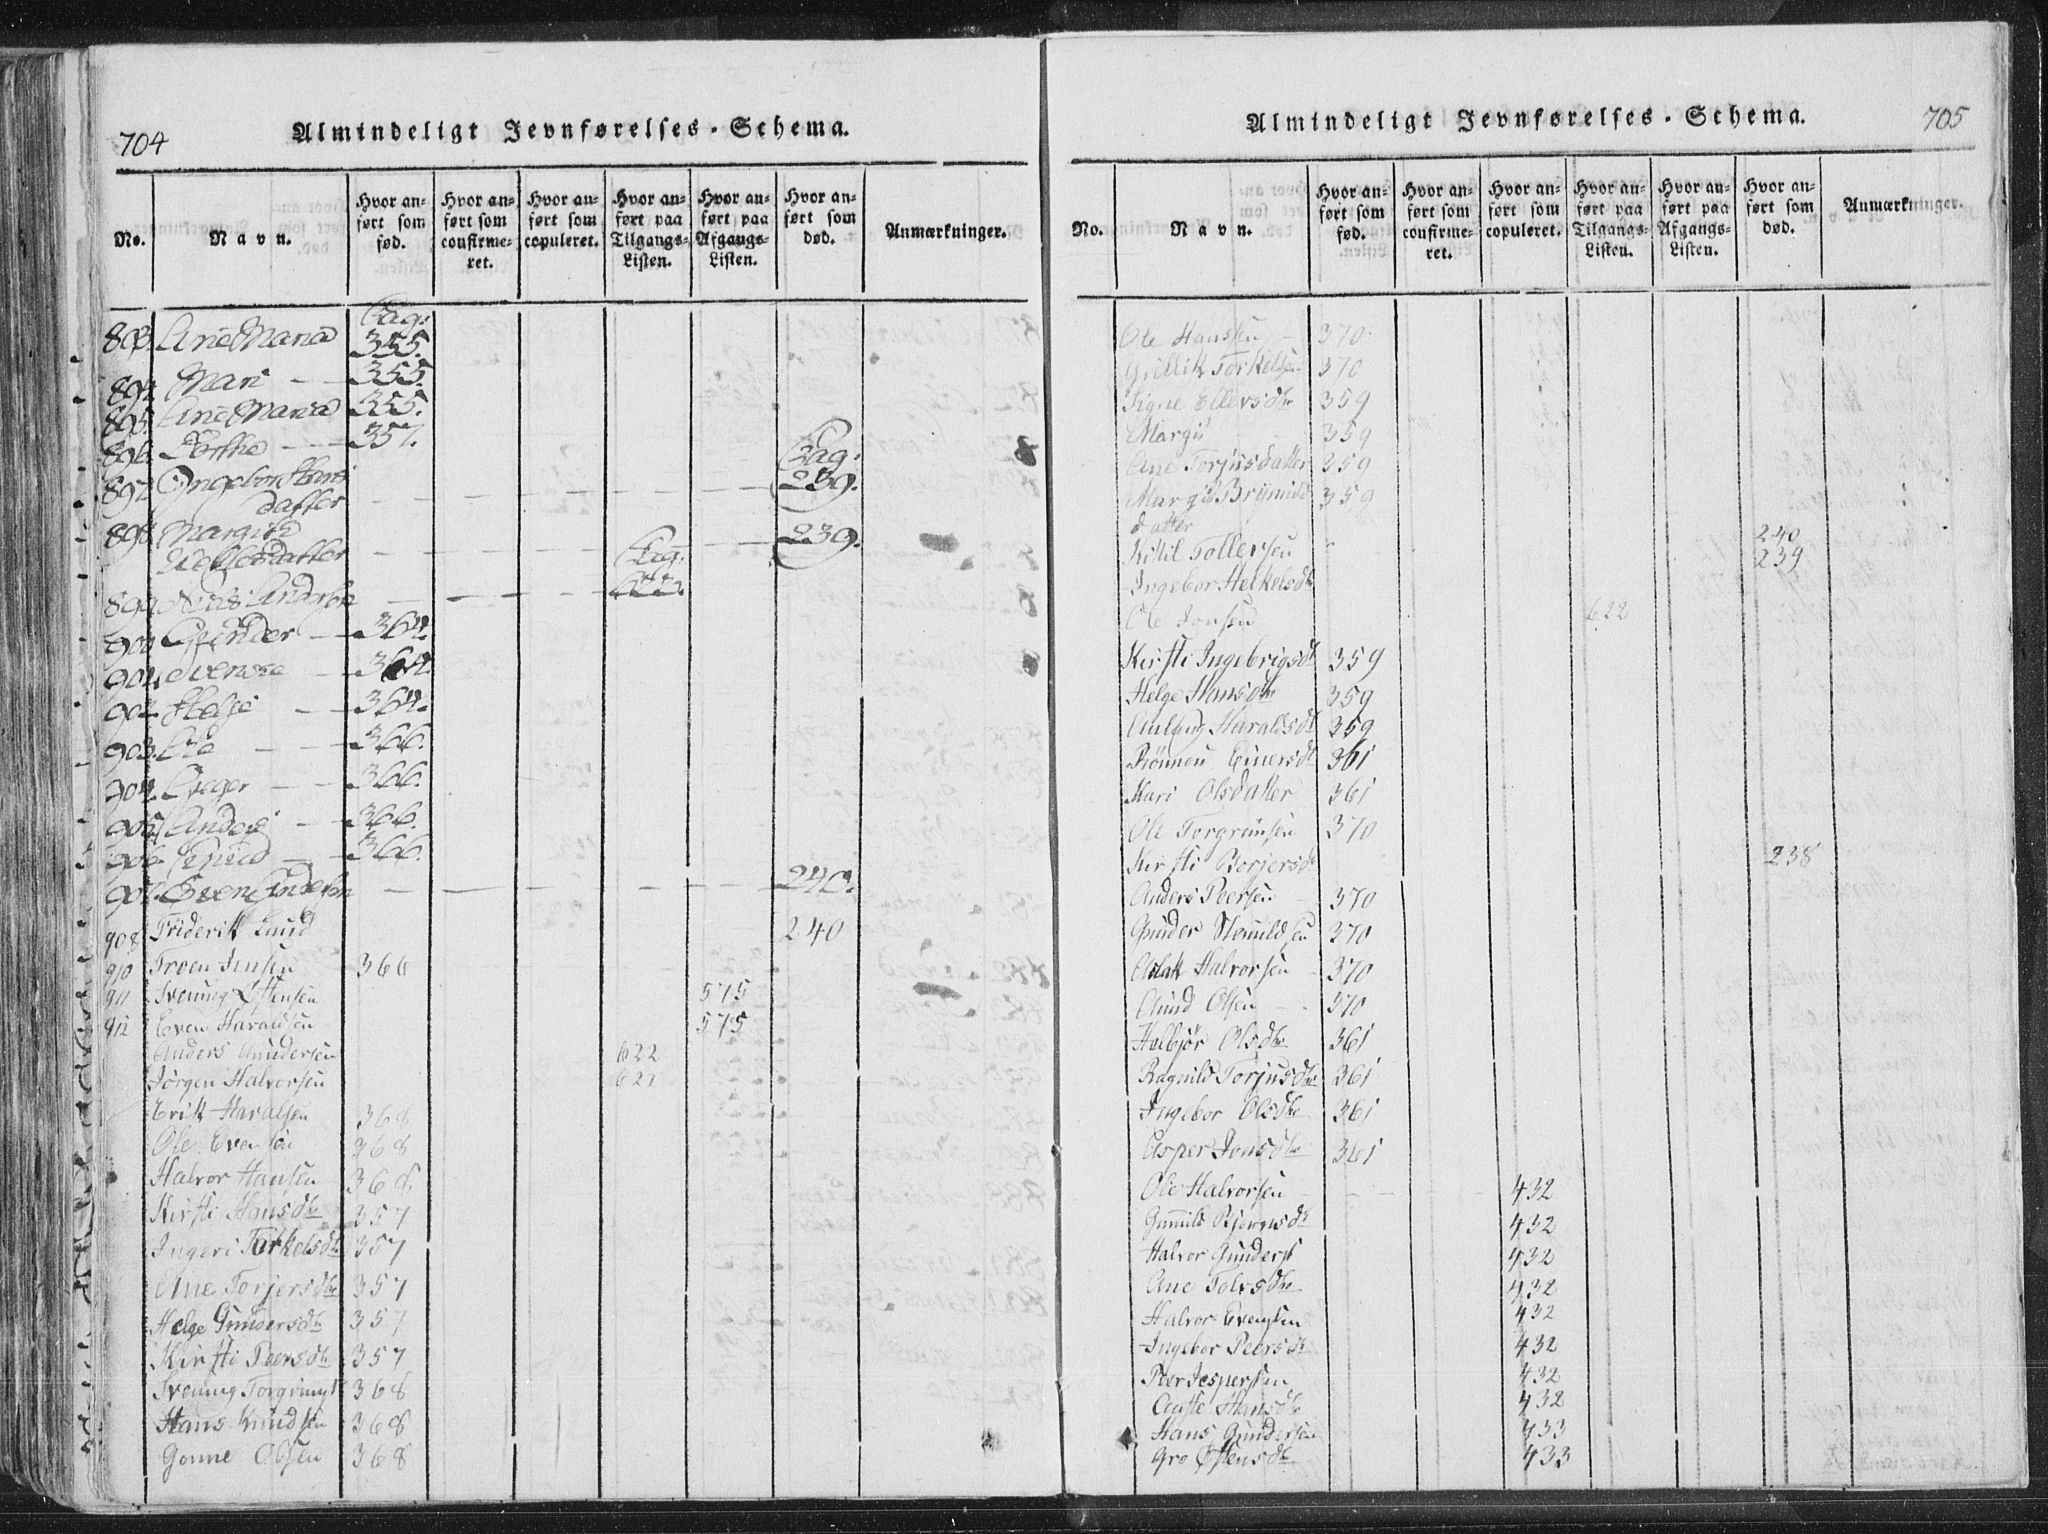 704
Almindeligt Jevnførelses-Schema.
No.
Navn.
Hvor an-
ført som
fød.
Hvor an-
ført som
confirme-
ret.
Hvor an-
ført som
copuleret.
Hvor an-
ført paa
Tilgangs-
Listen.
Hvor an-
ført paa
Afgangs-
Listen.
Hvor an-
ført som
død.
Anmærkninger.
Pag:
893. Ane Maria 355.
894. Mari - - 355.
895. Ane Maria 355.
896. - - 357.
Pag:
897. Ingebor Hans 239.
datter
898. Margith 239.
datter
Pag:
899. Niels Anderson 622.
900. Gunder - 364.
901. - 364.
902. Helje - - 364.
903. Ole - - 366.
904. - - 366.
905. Anders - 366.
906. - 366.
907. Even Anderson 240.
908 Friderik Lund 240
910 Troen Jensen 366
911 Svenning Østensen 575
912 Even Haraldsen 575
Anders Gundersen 622
Jørgen Halvorsen 622
Erik Haralsen 368
Ole Evensen 368
Halvor Hansen 368
Kirsti Hansdtr 357
Ingeri Torkelsdtr 357
Ane Torjersdtr 357
Helge Gundersdtr 357
Kirsti Peersdtr 357
Svenning Torgrims 368
Hans Knudsen 368
Gonne Olsen 368
Almindeligt Jevnførelses-Schema.
705
No.
Navn.
Hvor an-
ført som
fød.
Hvor an-
ført som
confirme-
ret.
Hvor an-
ført som
copuleret.
Hvor an-
ført paa
Tilgangs-
Listen.
Hvor an-
ført paa
Afgangs-
Listen.
Hvor an-
ført som
død.
Anmærkninger.
Ole Hanssen - 370
Gullik Torkelsen 370
Signe Ellersdtr 359
Margit 359
Ane Torjusdatter 359
Margit Brynild 359
datter
Kittil Tollefsen 240
Ingebor Helkelsdtr 239
Ole Jonsen 622
Kirsti Ingebrigsdtr 359
Helge Hansdtr 359
Aulaug Haraldsdtr 359
Rönnou Einersdtr 361
Kari Olsdatter 361
Ole Torgrimsen 370
Kirsti Borjersdtr 238
Anders Peersen - 370
Gunder 370
Aslak Halvorsen 370
Amund Olsen - 370
Halbjör Olsdtr 361
Ragnild Torjusdtr 361
Ingebor Olsdtr 361
Asper Jonsdtr 361
Ole Halvorsen - - - 432
Gunnild Bjørnsdtr 432
Halvor Gunders 432
Ane Tolvsdtr 432
Halvor Evensen 432
Ingebor Peersdtr 432
Peer Jespersen 432
Aaste Hansdtr 432
Hans Gundersen 433
Gro Østensdtr 433